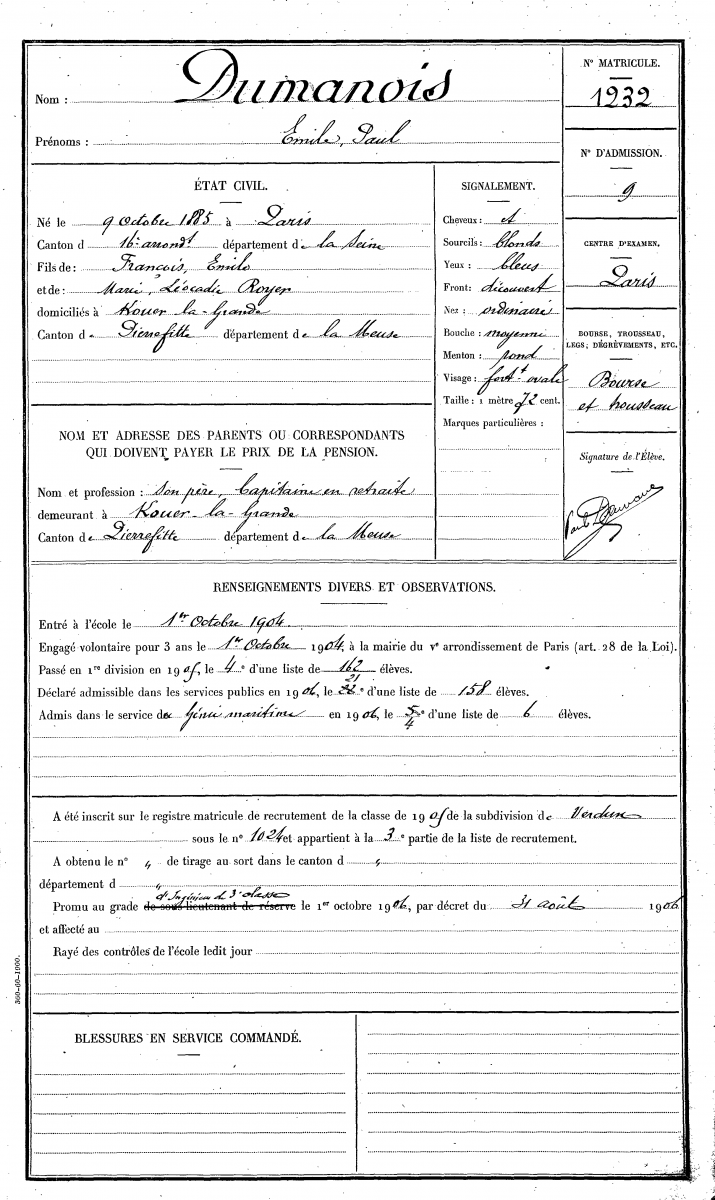 Nom : Dumanois
Prénoms : Emile, Paul
N° MATRICULE.
1232
N° D'ADMISSION.
9
CENTRE D'EXAMEN.
Paris
BOURSE, TROUSSEAU,
LEGS; DÉGRÈVEMENTS, ETC.
Bourse
et trousseau
Signature de l'Élève.
Paul Dumanois
ÉTAT CIVIL.
Né le 9 Octobre 1885 à Paris
Canton d 16e arrondt département de la Seine
Fils de : François, Emile
et de : Marie, Léocadie Royer
domiciliés à Kouer-la-Grande
Canton de Pierrefitte département de la Meuse
SIGNALEMENT.
Cheveux : et
Sourcils : blonds
Yeux : bleus
Front : découvert
Nez : ordinaire
Bouche : moyenne
Menton : rond
Visage : fort ovale
Taille : 1 mètre 72 cent.
Marques particulières :
NOM ET ADRESSE DES PARENTS OU CORRESPONDANTS
QUI DOIVENT PAYER LE PRIX DE LA PENSION.
Nom et profession : son père, Capitaine en retraite
demeurant à Kouer-la-Grande
Canton de Pierrefitte département de la Meuse
RENSEIGNEMENTS DIVERS ET OBSERVATIONS.
Entré à l'école le 1er Octobre 1904.
Engagé volontaire pour 3 ans le 1er Octobre 1904, à la mairie du Ve arrondissement de Paris (art. 28 de la Loi).
Passé en 1re division en 1905, le 4e d'une liste de 162 élèves.
21
Déclaré admissible dans les services publics en 1906, le 22e d'une liste de 158 élèves.
Admis dans le service du Génie maritime en 1906, le 5e d'une liste de 6 élèves.
4
A été inscrit sur le registre matricule de recrutement de la classe de 1905 de la subdivision de Verdun
sous le n° 1024 et appartient à la 3e partie de la liste de recrutement.
A obtenu le n° " de tirage au sort dans le canton d "
département d "
d'Ingénieur de 3e classe
Promu au grade de sous-lieutenant de réserve le 1er octobre 1906, par décret du 31 août 1906
et affecté au
Rayé des contrôles de l'école ledit jour
300-60-1900.
BLESSURES EN SERVICE COMMANDÉ.